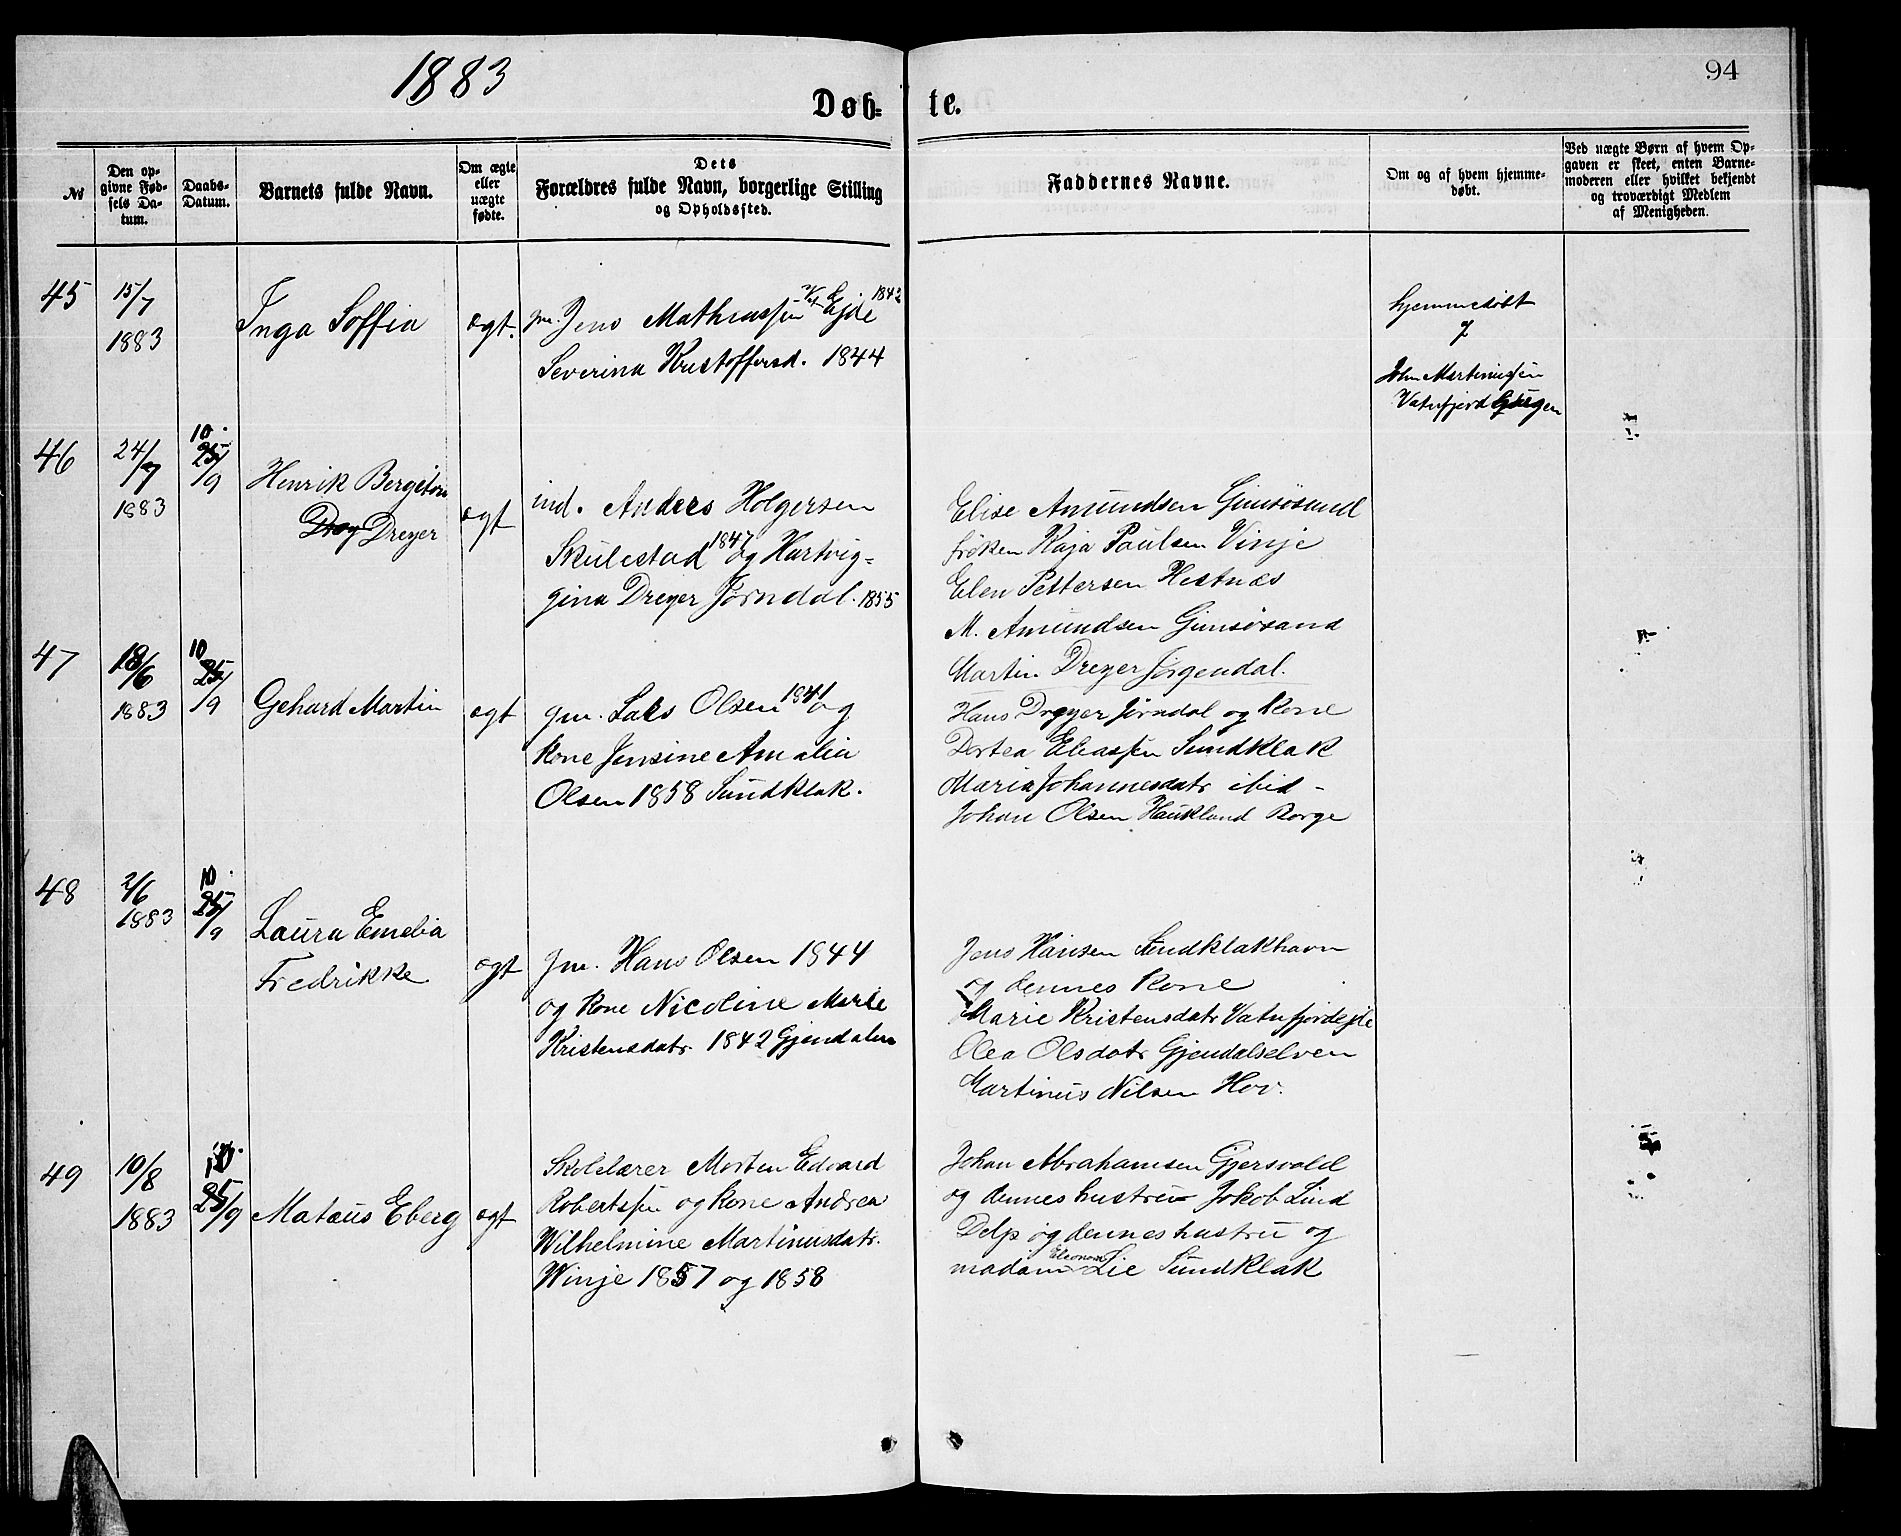 1883
94
Døb- te.
№
Den op-
givne Fød-
sels Da-
tum.
Daabs-
Datum.
Barnets fulde Navn.
Om ægte
eller
uægte
fødte.
Dets
Forældres fulde Navn, borgerlige Stilling
og Opholdssted.
Faddernes Navne.
Om og af hvem hjemme-
døbt.
Ved uægte Børn af hvem Op-
gaven er skeet, enten Barne-
moderen eller hvilket bekjendt
og troværdigt Medlem
af Menigheden.
45
15/7
1883
Inga Soffia
ægt.
gm. Jens Mathiassen Ejde 1842
Severina Kristoffersd. 1844
hjemmedøbt
John Martinussen
Vatnfjord
46
24/7
1883
10.
25/9
Henrik Bergeton
Drey Dreyer
ægt
ind. Anders Holgersen
Skulestad 1847 og Hartvig-
gina Dreyer Jørndal. 1855
Elise Amundsen Gimsøsand
frøken Kaja Paulsen Vinje
Elen Pettersen Hestnæs
M. Amundsen Gimsøsand
Martin Dreyer Jørgendal.
47
18/6
1883
10
25/9
Gehard Martin
ægt
gm. Lars Olsen 1841 og
kone Jensine Amalia
Olsen 1858 Sundklak.
Hans Dreyer Jørndal og kone
Dortea Eliassen Sundklak
Maria Johannesdatr ibid -
Johan Olsen Haukland Borge
48
2/6
1883
10.
25/9
Laura Emelia
Fredrikke
ægt
gm. Hans Olsen 1844
og kone Nicoline Marie
Kristensdatr. 1842 Gjendalen
Jens Hansen Sundklakhavn
og dennes kone
Marie Kristensdatr Vatnfjordejde
Olea Olsdatr Gjendalselven
Martinus Nilsen Hov.
49
10/8
1883
10.
25/9
Matæus Eberg
ægt
Skolelærer Morten Edvard
Robertsen og kone Andrea
Wilhelmine Martinusdatr.
Winje 1857 og 1858
Johan Abrahamsen Gjersvold
og dennes hustru Jakob Lind
Delp og dennes hustru og
madam Eleonora Lie Sundklak